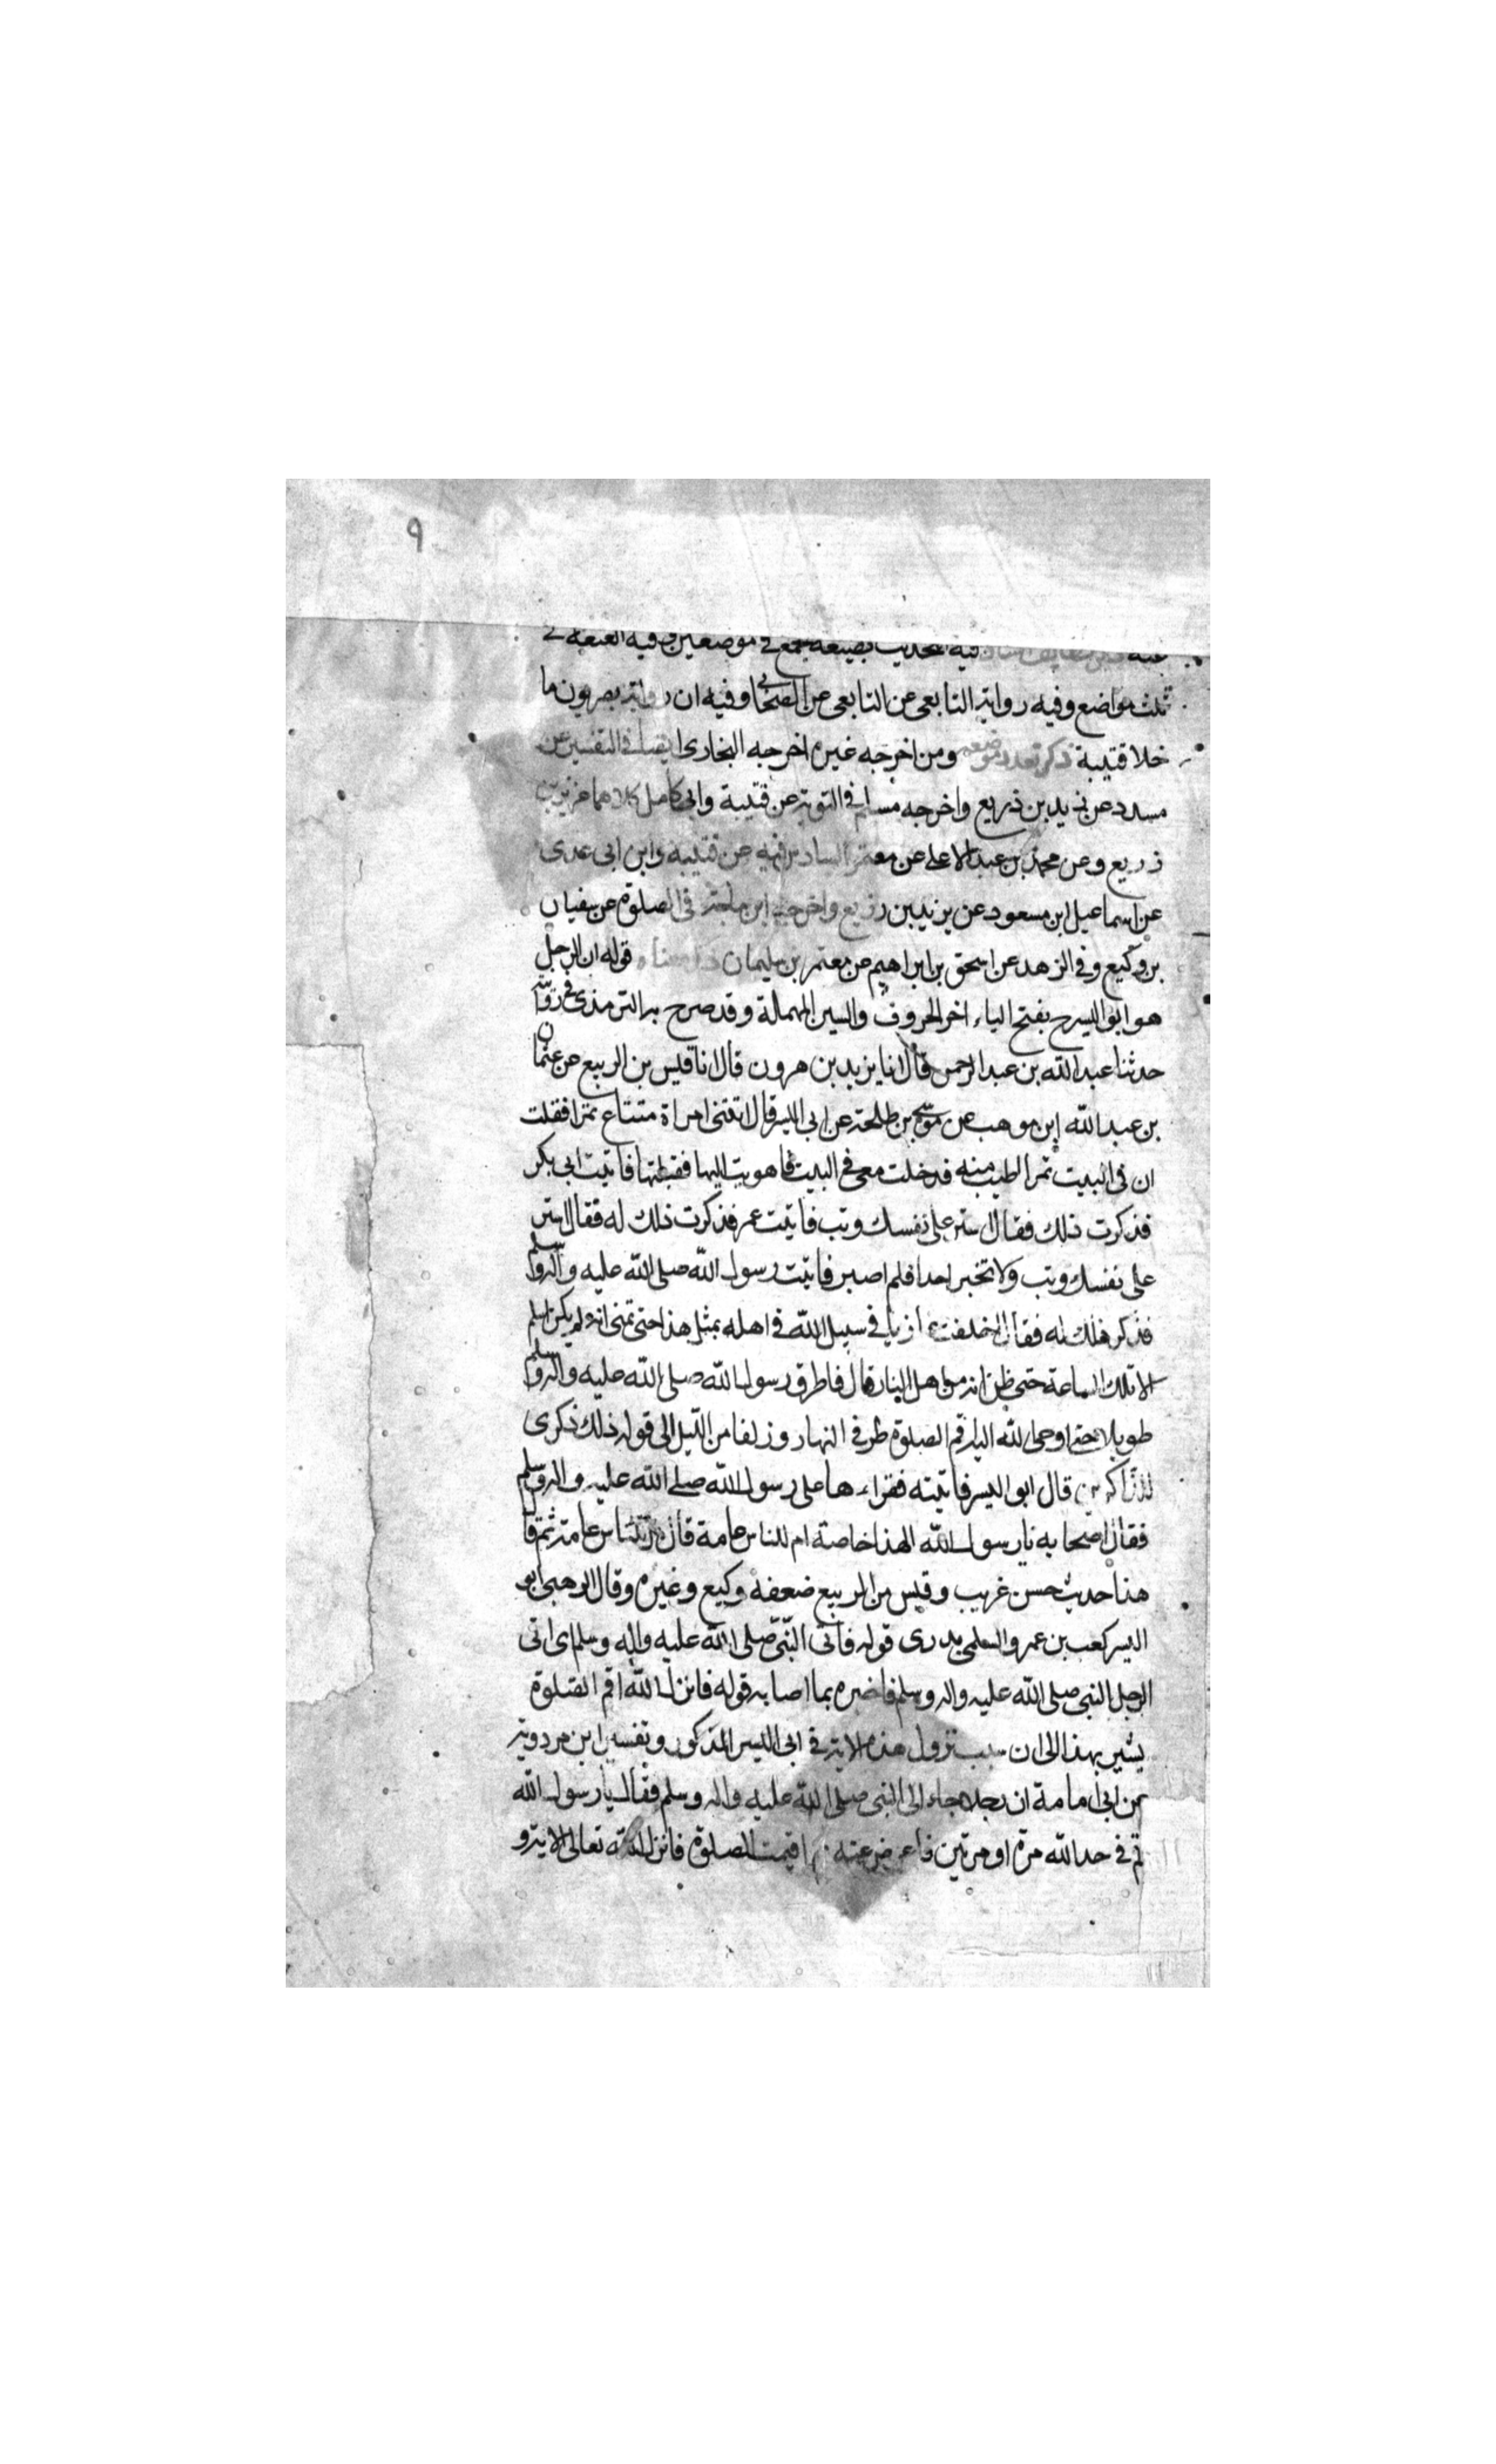 ٩
عنه فيه التحديث بصيغة الجمع في موضعين وفيه العنعنة في
ثلث مواضع وفيه رواية التابعى عن التابعى عن الصحابي وفيه ان رواته بصريون ما
خلا قتيبة ذكر تعدد موضعه ومن اخرجه غيره اخرجه البخارى ايضا في التفسير عن
مسدد عن يزيد بن ذريع واخرجه مسلم في التوبة عن قتيبة وابى كامل كلاهما عن يزيد بن
ذريع وعن محمد بن عبد الاعلى عن معتمر فيه عن قتيبة وابن ابى عدى
عن اسماعيل ابن مسعود عن يزيد بن زريع واخرجه ابن ماجة في الصلوة عن سفيان
بن وكيع وفي الزهد عن اسحق بن ابراهيم عن معتمر بن سليمان ذكر معناه قوله ان الرجل
هو ابو اليسر بفتح الياء اخر الحروف والسين المهملة وقد صرح به الترمذى في روايته
حدثنا عبد الله بن عبد الرحمن قال انا يزيد بن هرون قال انا قيس بن الربيع عن عثمان
بن عبد الله ابن موهب عن موسى بن طلحة عن ابى اليسر قال اتتنى امراة متبتاع تمرا فقلت
ان في البيت تمرا اطيب منه فدخلت معى في البيت فاهويت اليها فقبلتها فاتيت ابى بكر
فذكرت ذلك فقال استر على نفسك وتب فاتيت عمر فذكرت ذلك له فقال استر
على نفسك وتب ولا تخبر احدا فلم اصبر فاتيت رسول الله صلى الله عليه واله وسلم
فذكر ذلك له فقال اخلفت غازيا في سبيل الله في اهله بمثل هذا حتى تمنى انه لم يكن اسلم
الا تلك الساعة حتى ظن انه من اهل النار قال فاطرق رسول الله صلى الله عليه واله وسلم
طويلا حتى اوحى الله اليه اقم الصلوة طرفي النهار وزلفا من الليل الى قوله ذلك ذكرى
للذاكرين قال ابو اليسر فاتيته فقراءها على رسول الله صلى الله عليه واله وسلم
فقال اصحابه يا رسول الله الهذا خاصة ام للناس عامة قال بل للناس عامة ثم قا
هذا حديث حسن غريب وقيس بن الربيع ضعفه وكيع وغيره وقال الذهبى ابو
اليسر كعب بن عمرو السلمى بدرى قوله فاتى النبى صلى الله عليه واله وسلم اى اتى
الرجل النبى صلى الله عليه واله وسلم فاخبره بما اصابه قوله فانزل الله اقم الصلوة
يشير بهذا الى ان سبب نزول هذه الاية في ابى اليسر المذكور وتفسير ابن مردوية
عن ابى امامة ان رجلا جاء الى النبى صلى الله عليه واله وسلم فقال يا رسول الله
قم في حد الله مرة او مرتين فاعرض عنه ثم اقيمت الصلوة فانزل الله تعالى الاية و